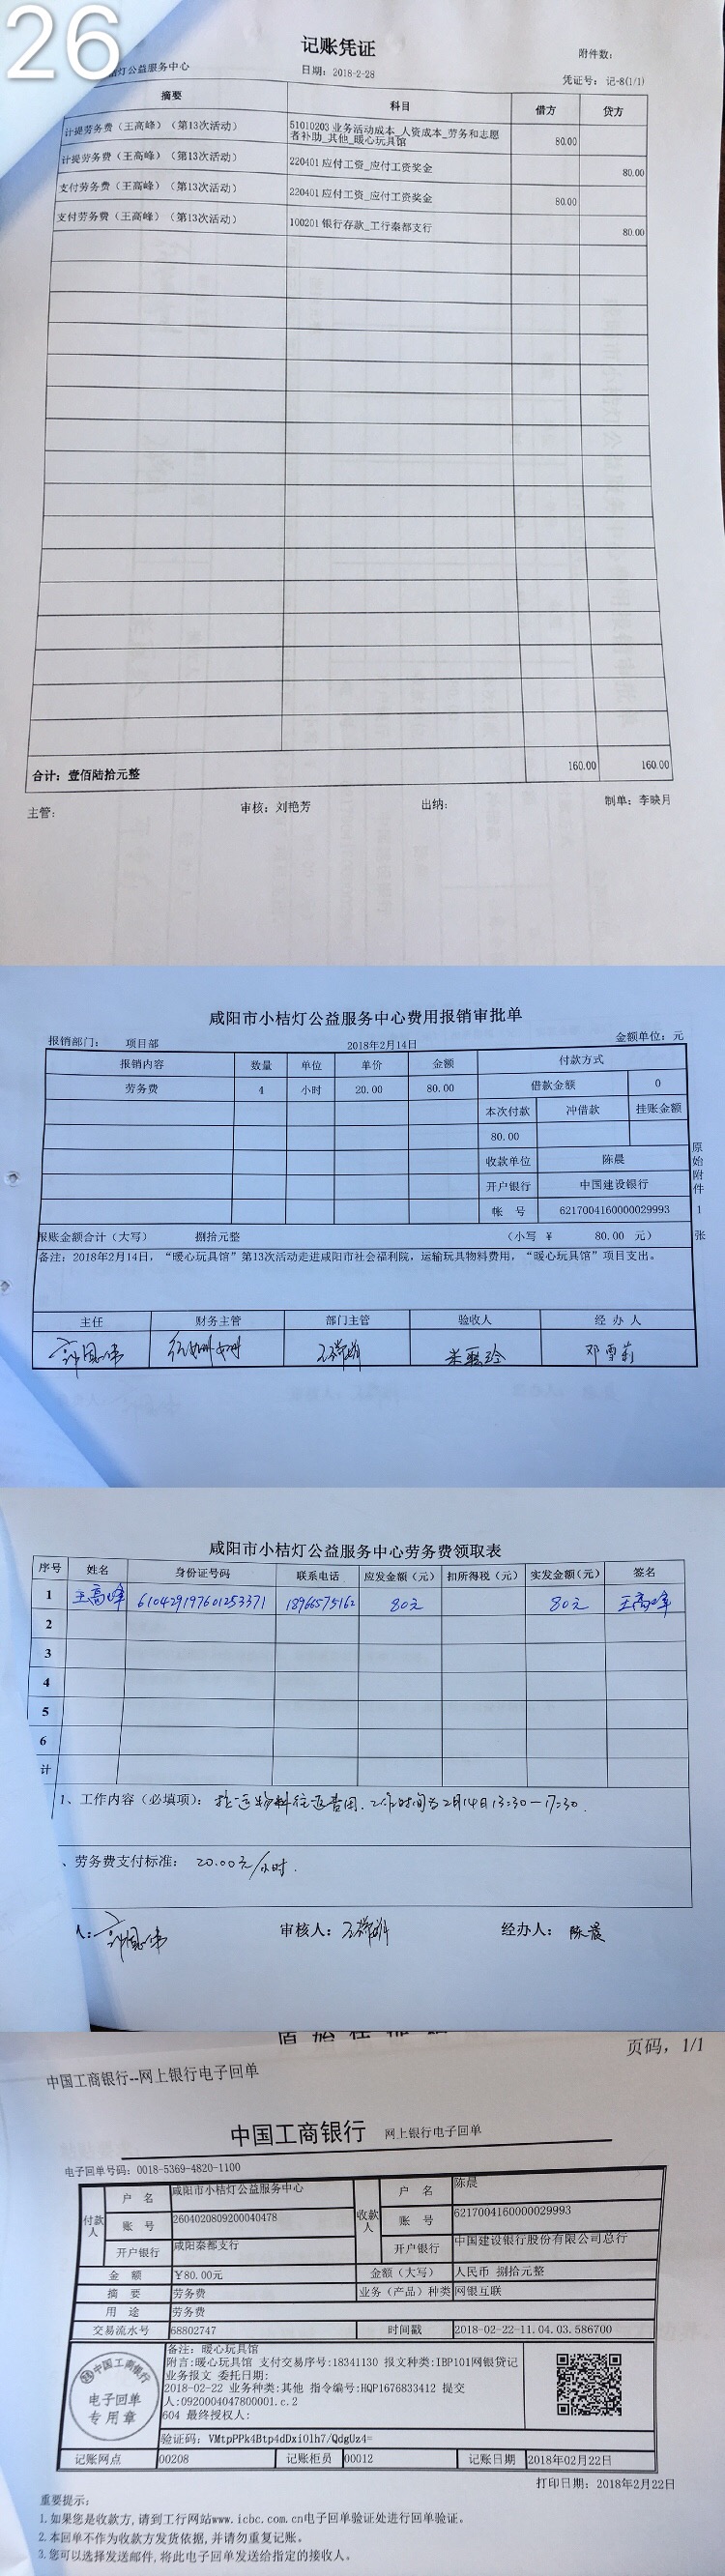 26
记账凭证
附件数:
桔灯公益服务中心
日期: 2018-2-28
凭证号: 记-8(1/1)
摘要 科目 借方 贷方
计提劳务费（王高峰）（第13次活动） 51010203 业务活动成本_人资成本_劳务和志愿者补助_其他_暖心玩具馆 80.00
计提劳务费（王高峰）（第13次活动） 220401 应付工资_应付工资奖金 80.00
支付劳务费（王高峰）（第13次活动） 220401 应付工资_应付工资奖金 80.00
支付劳务费（王高峰）（第13次活动） 100201 银行存款_工行秦都支行 80.00
合计: 壹佰陆拾元整 160.00 160.00
主管: 审核: 刘艳芳 出纳: 制单: 李映月
咸阳市小桔灯公益服务中心费用报销审批单
报销部门: 项目部 2018年2月14日 金额单位: 元
报销内容 数量 单位 单价 金额 付款方式
劳务费 4 小时 20.00 80.00 借款金额 0
本次付款 冲借款 挂账金额
80.00
收款单位 陈晨
开户银行 中国建设银行
帐 号 6217004160000029993
原始附件 1 张
报账金额合计（大写） 捌拾元整 （小写 ¥ 80.00 元）
备注: 2018年2月14日, “暖心玩具馆”第13次活动走进咸阳市社会福利院, 运输玩具物料费用, “暖心玩具馆”项目支出。
主任 财务主管 部门主管 验收人 经 办 人
邓雪莉
咸阳市小桔灯公益服务中心劳务费领取表
序号 姓名 身份证号码 联系电话 应发金额（元） 扣所得税（元） 实发金额(元) 签名
1 王高峰 610429197601253371 18966575162 80元 80元 王高峰
2
3
4
5
6
计
1、工作内容（必填项）: 拉运物料往返费用. 工作时间为2月14日13:30—17:30.
、劳务费支付标准: 20.00元/小时.
人: 审核人: 经办人: 陈晨
页码, 1/1
中国工商银行--网上银行电子回单
中国工商银行 网上银行电子回单
电子回单号码: 0018-5369-4820-1100
付款人 户 名 咸阳市小桔灯公益服务中心 收款人 户 名 陈晨
账 号 2604020809200040478 账 号 6217004160000029993
开户银行 咸阳秦都支行 开户银行 中国建设银行股份有限公司总行
金 额 ¥80.00元 金额（大写） 人民币 捌拾元整
摘 要 劳务费 业务（产品）种类 网银互联
用 途 劳务费
交易流水号 68802747 时间戳 2018-02-22-11.04.03.586700
备注: 暖心玩具馆
附言:暖心玩具馆 支付交易序号:18341130 报文种类:IBP101网银贷记
业务报文 委托日期:
2018-02-22 业务种类:其他 指令编号:HQP1676833412 提交
人:0920004047800001.c.2
604 最终授权人:
中国工商银行
电子回单
专用章
验证码: VMtpPPk4Btp4dDxiOlh7/QdgUz4=
记账网点 00208 记账柜员 00012 记账日期 2018年02月22日
打印日期: 2018年2月22日
重要提示:
1.如果您是收款方,请到工行网站www.icbc.com.cn电子回单验证处进行回单验证。
2.本回单不作为收款方发货依据,并请勿重复记账。
3.您可以选择发送邮件,将此电子回单发送给指定的接收人。